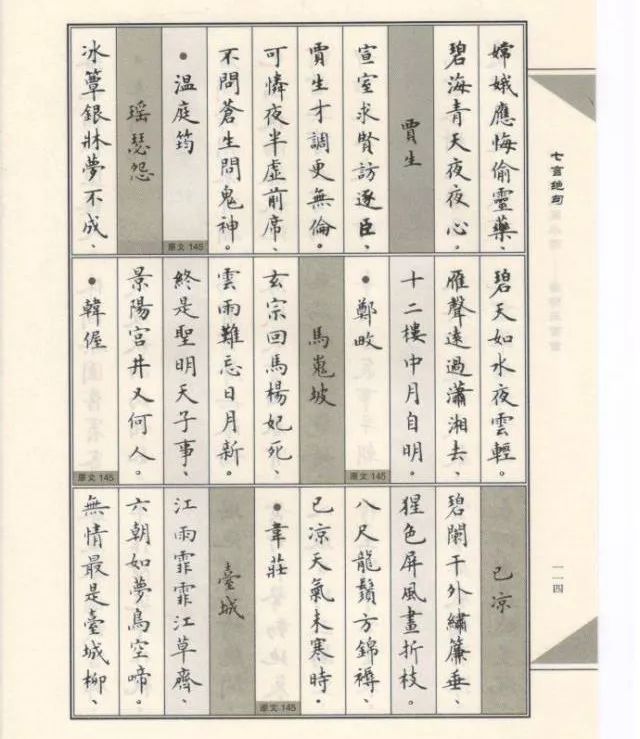 七言絕句
嫦娥應悔偷靈藥、
碧海青天夜夜心。
賈生
宣室求賢訪逐臣、
賈生才調更無倫。
可憐夜半虛前席、
不問蒼生問鬼神。
●溫庭筠
原文145
瑶瑟怨
冰簟銀牀夢不成、
碧天如水夜雲輕。
雁聲遠過瀟湘去、
十二樓中月自明。
●鄭畋
原文145
馬嵬坡
玄宗回馬楊妃死、
雲雨難忘日月新。
終是聖明天子事、
景陽宮井又何人。
●韓偓
原文145
已凉
碧闌干外繡簾垂、
猩色屏風畫折枝。
八尺龍鬚方錦褥、
已凉天氣未寒時。
●韋莊
原文145
臺城
江雨霏霏江草齊、
六朝如夢鳥空啼。
無情最是臺城柳、
一一四